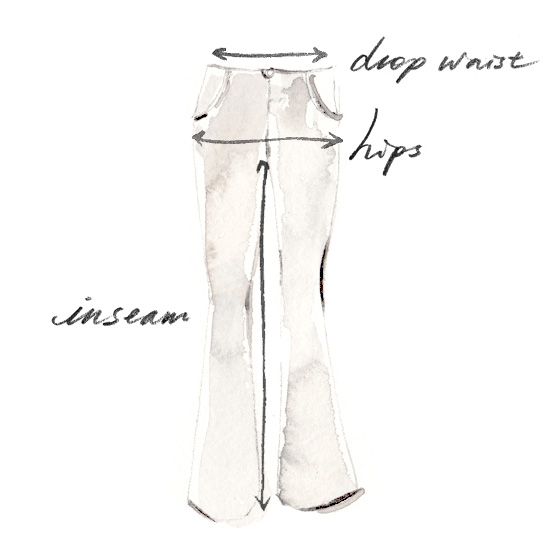 drop waist
hips
inseam